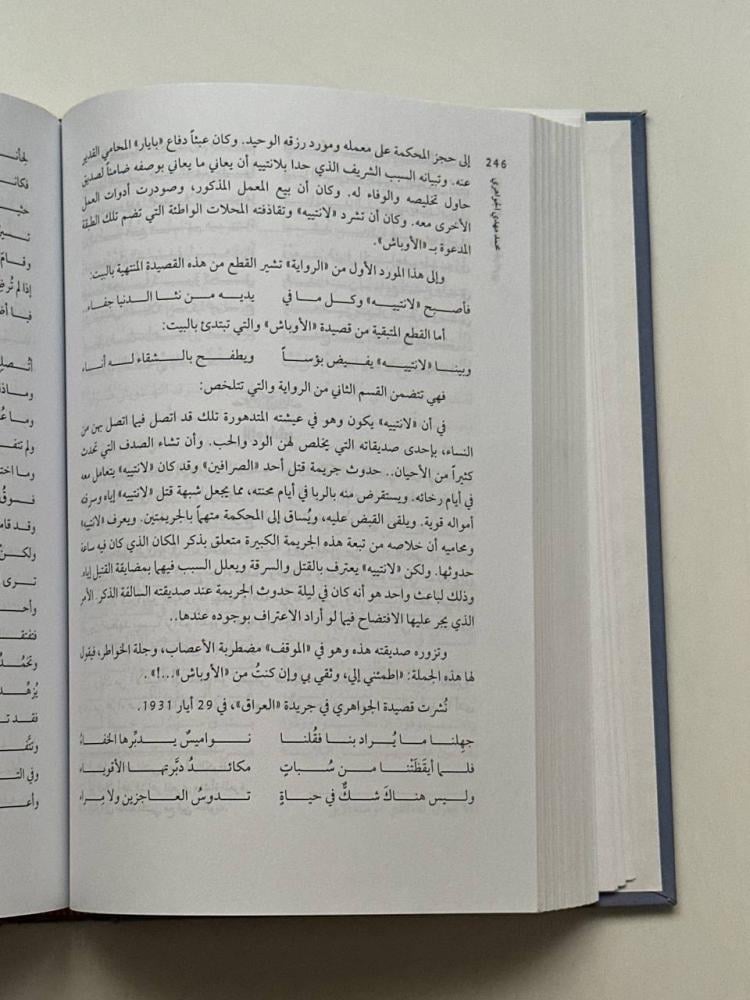 246
محمد مهدي الجواهري
إلى حجز المحكمة على معمله ومورد رزقه الوحيد. وكان عبثاً دفاع «بايار» المحامي القدير
عنه. وتبيانه السبب الشريف الذي حدا بلانتييه أن يعاني ما يعاني بوصفه ضامناً لصديق
حاول تخليصه والوفاء له. وكان أن بيع المعمل المذكور، وصودرت أدوات العمل
الأخرى معه. وكان أن تشرد «لانتييه» وتقاذفته المحلات الواطئة التي تضم تلك الطبقة
المدعوة بـ «الأوباش».
وإلى هذا المورد الأول من «الرواية» تشير القطع من هذه القصيدة المنتهية بالبيت:
فأصبح «لانتييه» وكل ما في يديه من نثا الدنيا جفاء..
أما القطع المتبقية من قصيدة «الأوباش» والتي تبتدئ بالبيت:
وبينا «لانتييه» يفيض بؤساً ويطفح بالشقاء له أناء
فهي تتضمن القسم الثاني من الرواية والتي تتلخص:
في أن «لانتييه» يكون وهو في عيشته المتدهورة تلك قد اتصل فيما اتصل بهن من
النساء، بإحدى صديقاته التي يخلص لهن الود والحب. وأن تشاء الصدف التي تحدث
كثيراً من الأحيان.. حدوث جريمة قتل أحد «الصرافين» وقد كان «لانتييه» يتعامل معه
في أيام رخائه. ويستقرض منه بالربا في أيام محنته، مما يجعل شبهة قتل «لانتييه» إياه وسرقة
أمواله قوية. ويلقى القبض عليه، ويُساق إلى المحكمة متهماً بالجريمتين. ويعرف «لانتييه»
ومحاميه أن خلاصه من تبعة هذه الجريمة الكبيرة متعلق بذكر المكان الذي كان فيه ساعة
حدوثها. ولكن «لانتييه» يعترف بالقتل والسرقة ويعلل السبب فيهما بمضايقة القتيل إياه.
وذلك لباعث واحد هو أنه كان في ليلة حدوث الجريمة عند صديقته السالفة الذكر. الأمر
الذي يجر عليها الافتضاح فيما لو أراد الاعتراف بوجوده عندها..
وتزوره صديقته هذه وهو في «الموقف» مضطربة الأعصاب، وجلة الخواطر، فيقول
لها هذه الجملة: «اطمئني إلي، وثقي بي وإن كنتُ من «الأوباش»...!» .
نُشرت قصيدة الجواهري في جريدة «العراق»، في 29 أيار 1931.
جهِلنا ما يُراد بنا فقُلنا نواميسٌ يدبِّرها الخفاءُ
فلما أيقَظَتْنا من سُباتٍ مكائدُ دبَّرتها الأقوياء
وليس هناكَ شكٌّ في حياةٍ تدوسُ العاجزين ولا مِراء